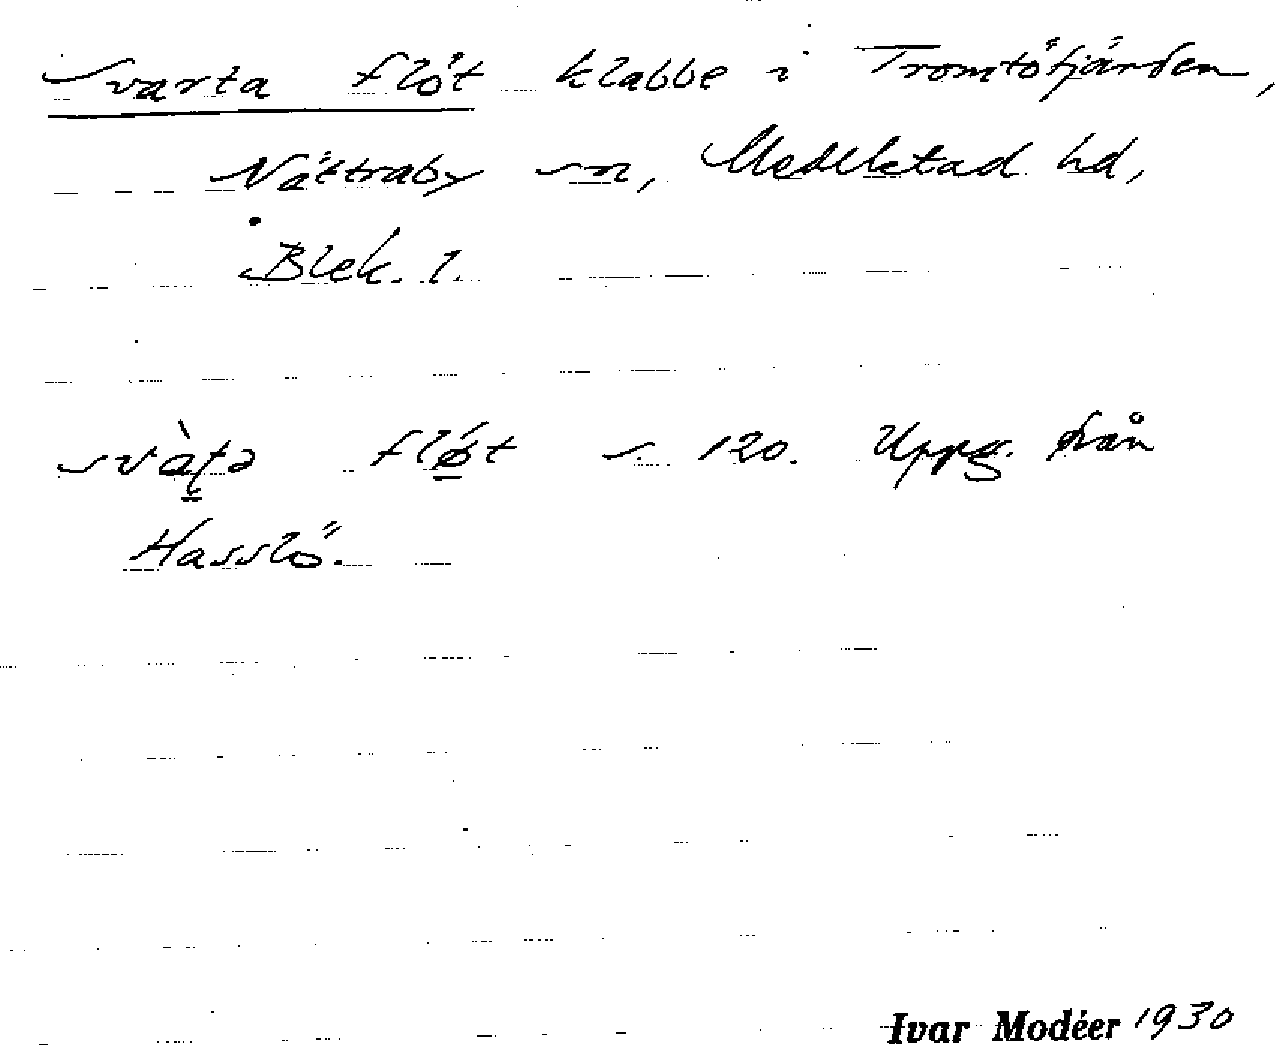 Svarta flöt klabbe i Tromtöfjärden,
Nättraby sn, Medelstad hd,
Blek. l.
flǿt s. 120. Uppg. från
Hasslö.
Ivar Modéer 1930